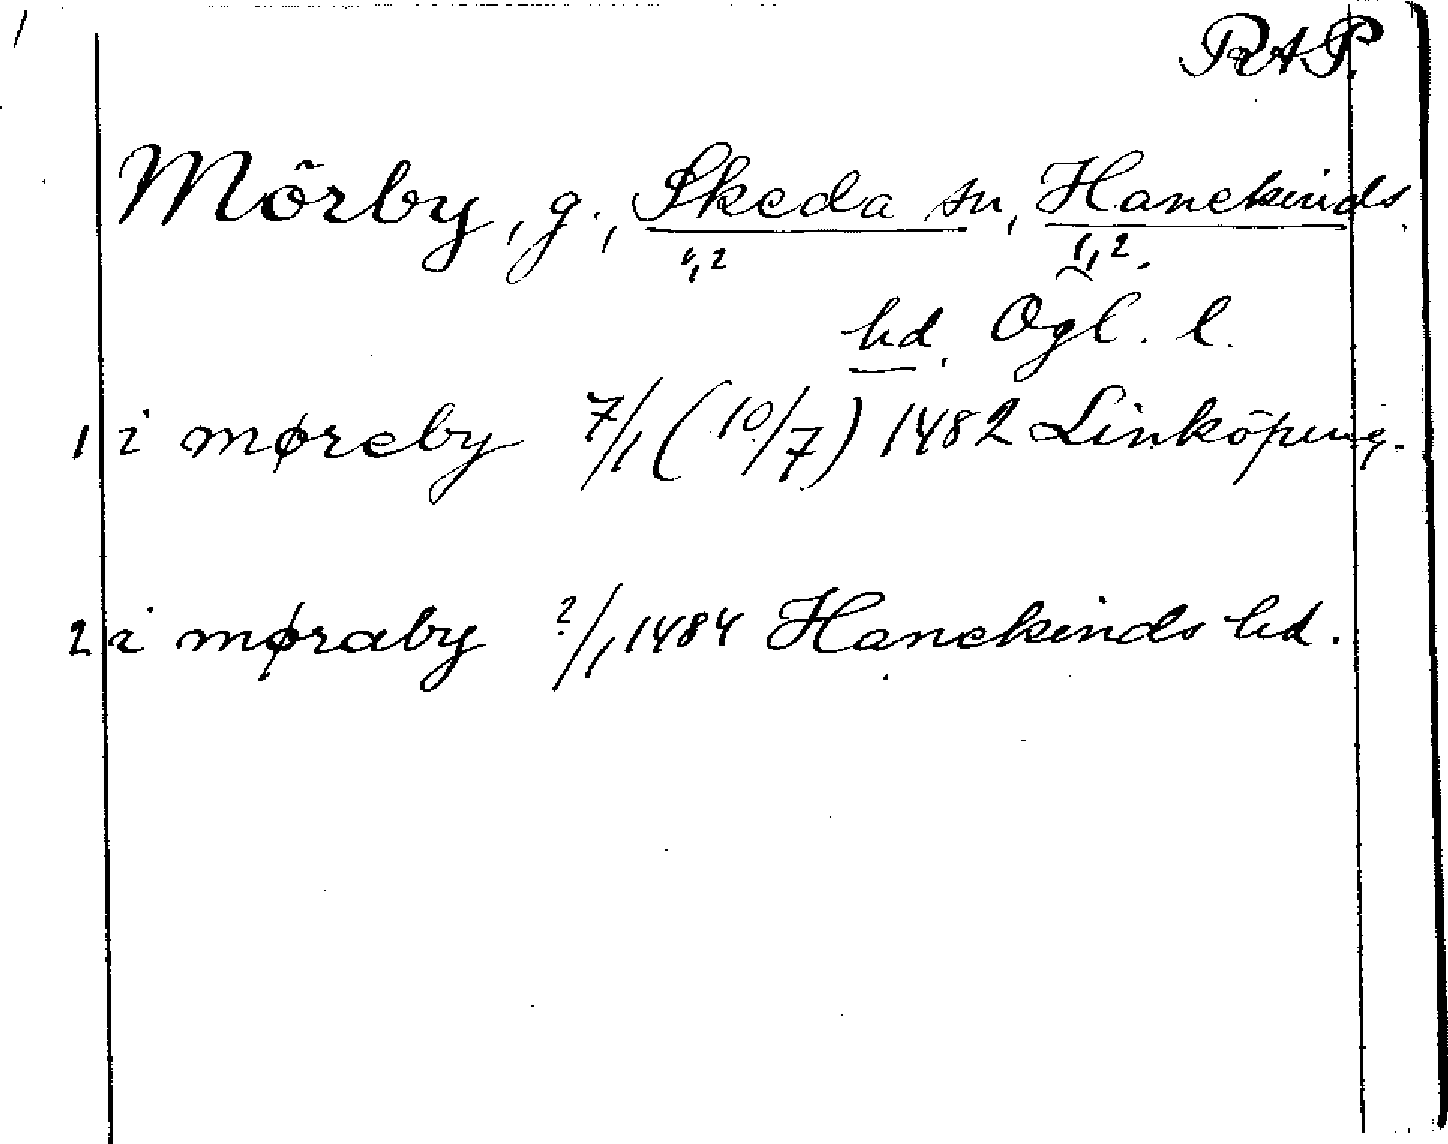 RAP.
Mörby, g., Skeda sn, Hanekinds
1,2 1,2.
hd. Ögl. l.
1 i møreby 7/1 (10/7) 1482 Linköping.
2 i møraby ?/1 1484 Hanekinds hd.